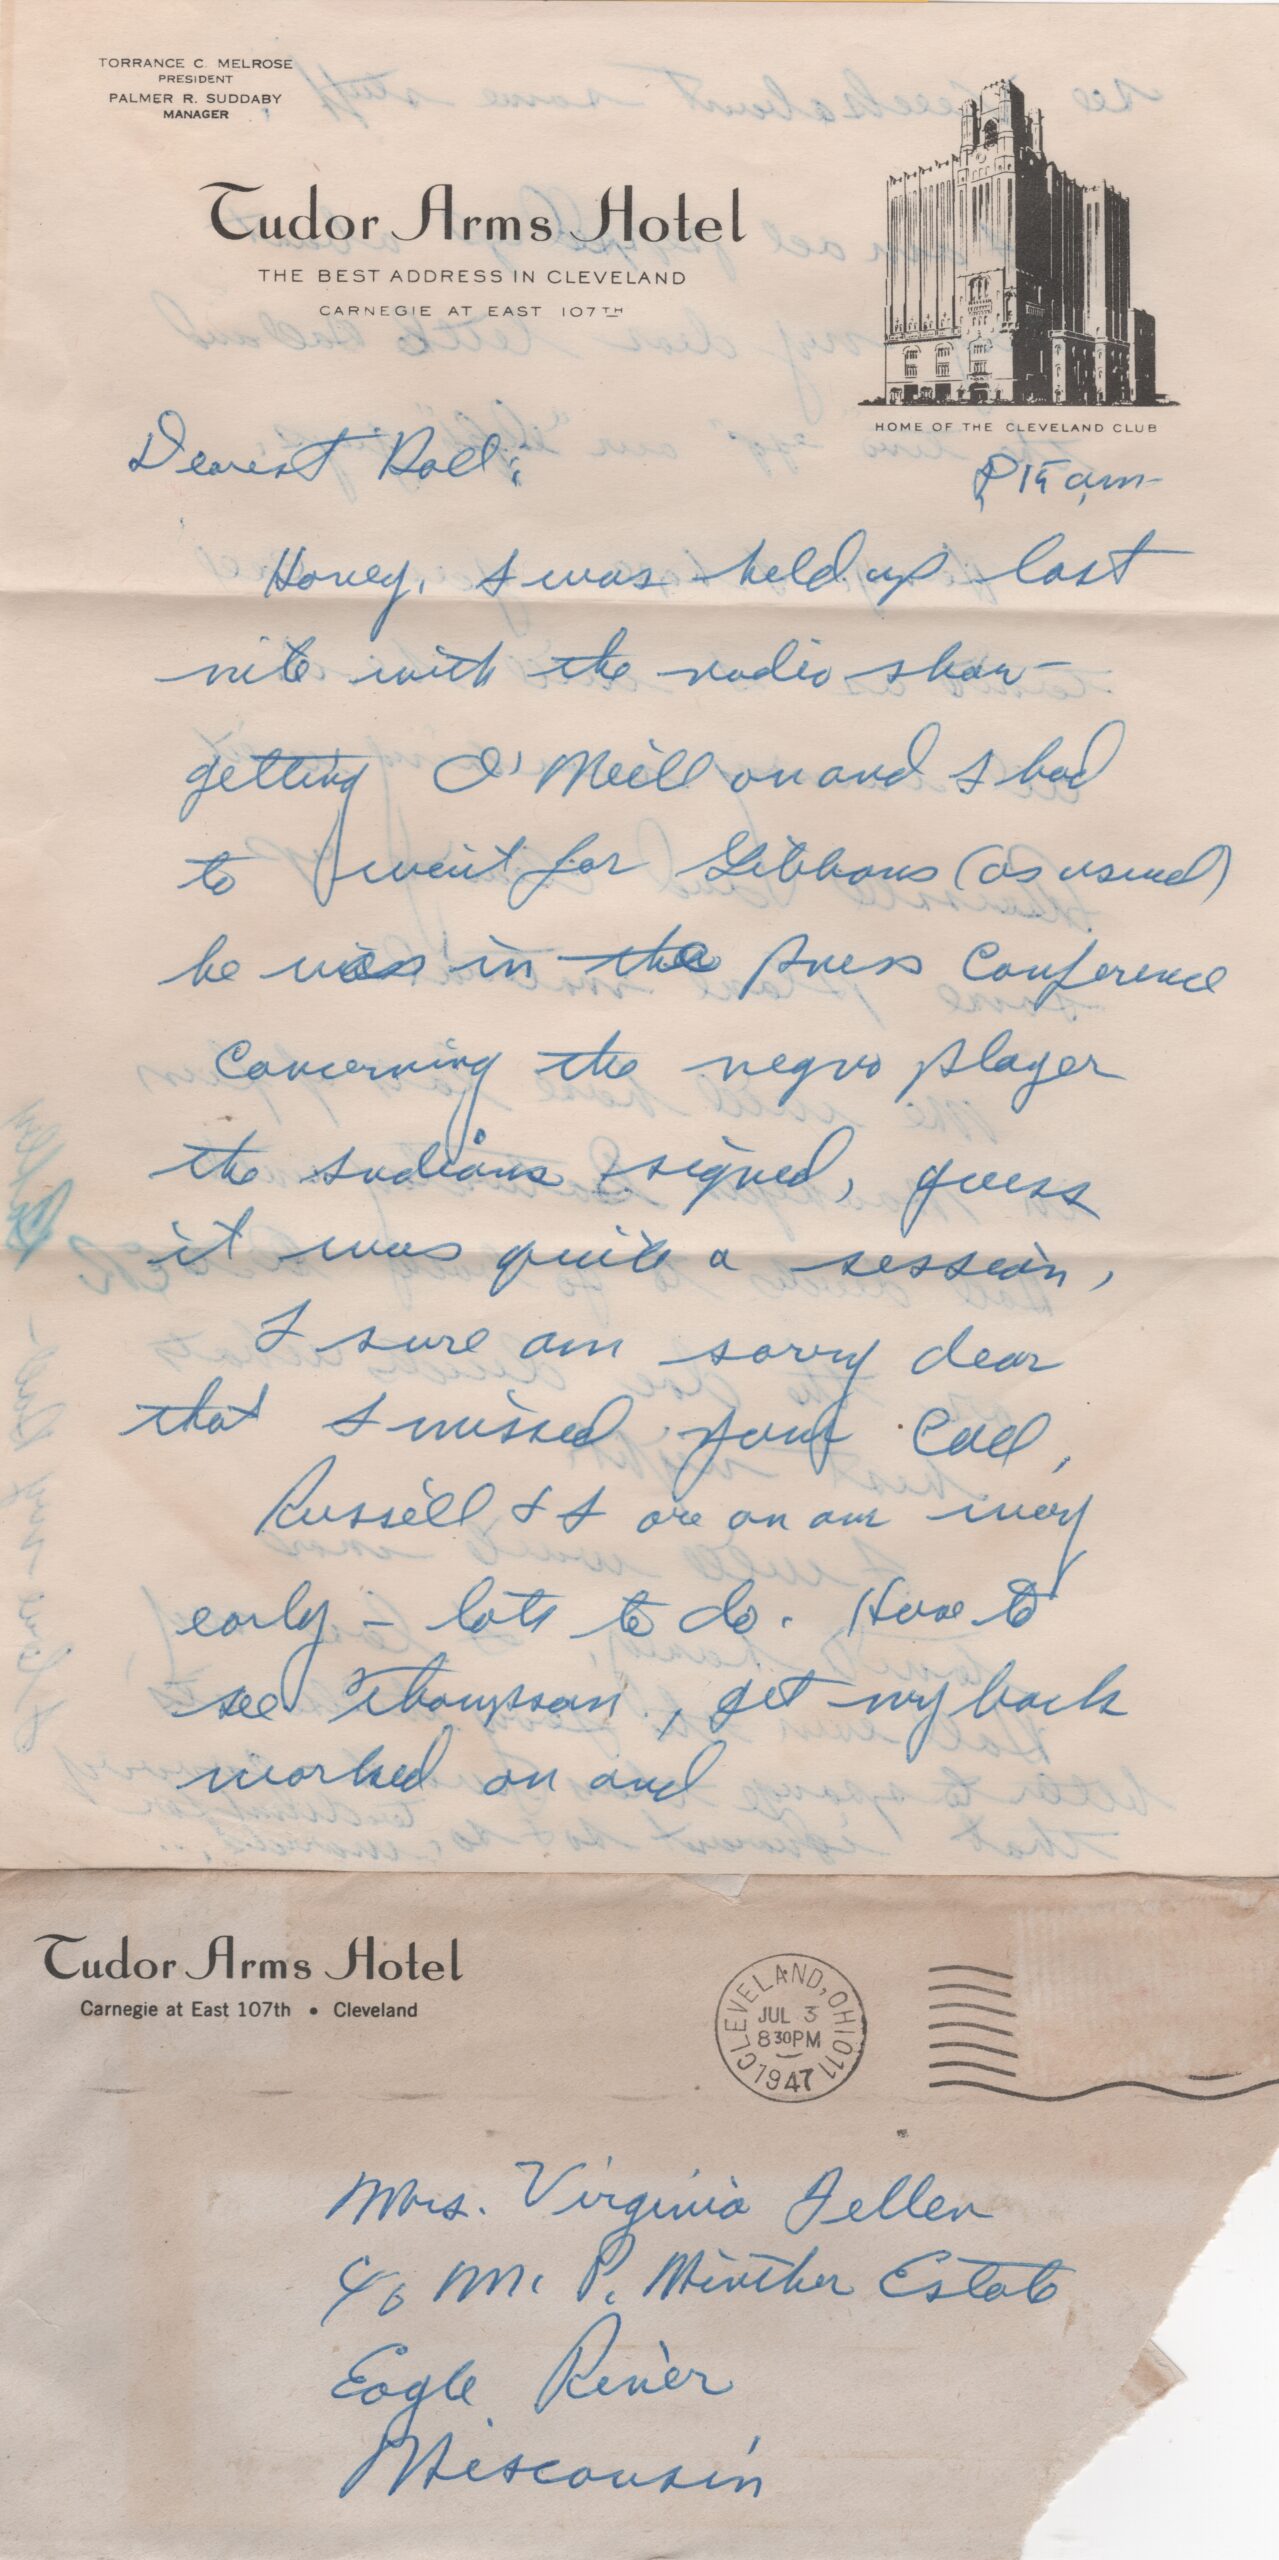 TORRANCE C. MELROSE
PRESIDENT
PALMER R. SUDDABY
MANAGER
Tudor Arms Hotel
THE BEST ADDRESS IN CLEVELAND
CARNEGIE AT EAST 107TH
HOME OF THE CLEVELAND CLUB
Dearest Doll;
am
Honey, I was held up last
nite with the radio show –
getting O'Neill on and I had
to wait for Gibbons (as usual)
he was in the press conference
concerning the negro player
the Indians signed, guess
it was quite a session,
I sure am sorry dear
that I missed your call,
Russell & I are on our way
early – lots to do. Have to
see Thompson, get my back
worked on and
Tudor Arms Hotel
Carnegie at East 107th • Cleveland
CLEVELAND, OHIO 11
JUL 3
8 30PM
1947
Mrs. Virginia Feller
% M. P. Winther Estate
Eagle River
Wisconsin